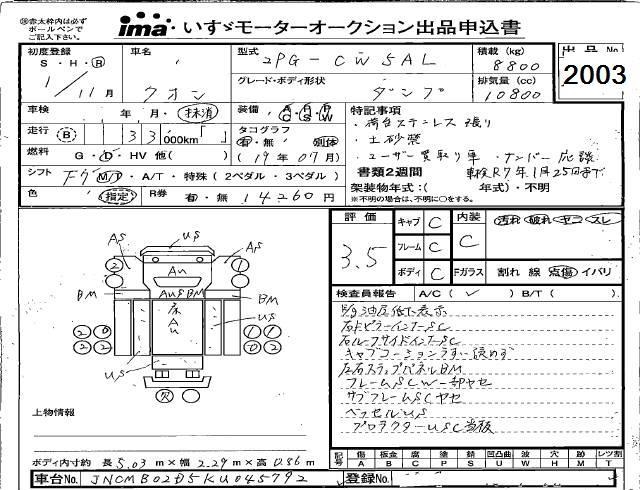 ※赤太枠内は必ず
ボールペンで
ご記入下さい。
ima いすゞモーターオークション出品申込書
初度登録 車名 型式 積載 (kg) 出品No
S・H・R 2PG-CW5AL 8800
1/11月 クオン グレード・ボディ形状 排気量 (cc) 2003
ダンプ 10800
車検 年 月・抹消 装備 A/C P/S P/W 特記事項
・荷台ステンレス張り
走行 R 33 000km タコグラフ
有・無 別体 ・土砂禁
燃料 G・D・HV 他( ) (19年07月) ・ユーザー買取り車・ナンバー応談
シフト F7 M/・A/T・特殊(2ペダル・3ペダル) 書類2週間 車検R7年1月25日まで
色 指定 R券 有・無 14260円 架装物年式:( 年式)・不明
※不明の場合は、不明に○をする。
評価 3.5
キャブ C 内装 C 汚れ 破れ ヤコ スレ
フレーム C
ボディ C Fガラス 割れ 線 点傷 イパリ
検査員報告 A/C(✓) B/T( )
E/g油圧低下表示
右Fピラーインナ-SC
右ルーフサイドインナ-SC
キャブコーションラベル読めず
左右ステップパネルBM
フレームUSCW一部ヤセ
サブフレームSCヤセ
ベッセルUS
プロテクターUSC当板
US
AS AS
2
Au
BM AUSBM BM
床
Au
US
US
2 2 1 1
2 2 2 2
欠
上物情報
ボディ内寸約 長 5.03m×幅 2.29m×高 0.86m
記号 傷 板金 腐 塗 錆 凹凸曲 波 穴 跡 レツ割
A B C P S U W H M T
車台No. JNCMB02D5KU045792 登録No.